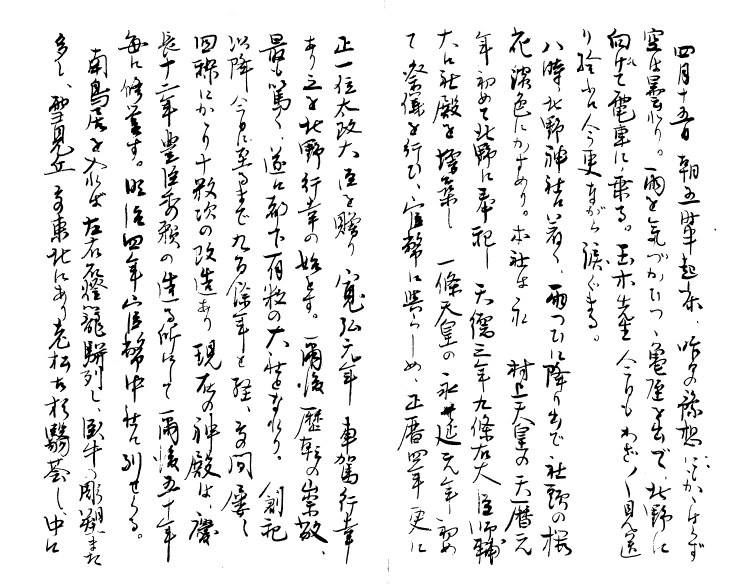 四月十五日 朝五時半起床、昨夕の豫想にかゝはらず
空は曇れり。雨を気づかひつゝ亀屋を出で、北野に
向けて電車に乗る。玉木先生今日もわざ〳〵見送
り給ふに今更ながら涙ぐまる。
八時北野神社に着く、雨つひに降り出で社頭の桜
花濃色にかすめり。本社は 村上天皇の天暦元
年初めて北野に奉祀し 天徳三年九條右大臣師輔
大に社殿を増築し 一條天皇の永延元年初め
て祭儀を行ひ、官幣に與らしめ、正暦四年更に
正一位太政大臣を贈り 寛弘元年 車駕行幸
あり之を北野行幸の始とす。爾後歴朝の崇敬、
最も篤く、遂に都下有数の大社となれり。 創祀
以降今日に至るまで九百餘年を経、その間屡〻
回禄にかゝり十数次の改造あり 現在の神殿は、慶
長十二年豊臣秀頼の造る所にして爾後五十年
毎に修営す。明治四年官幣中社に列せらる。
南鳥居を入れば左右石燈籠駢列し、臥牛の彫塑また
多し、雪見丘その東北にあり老松古杉翳蔚し、中に